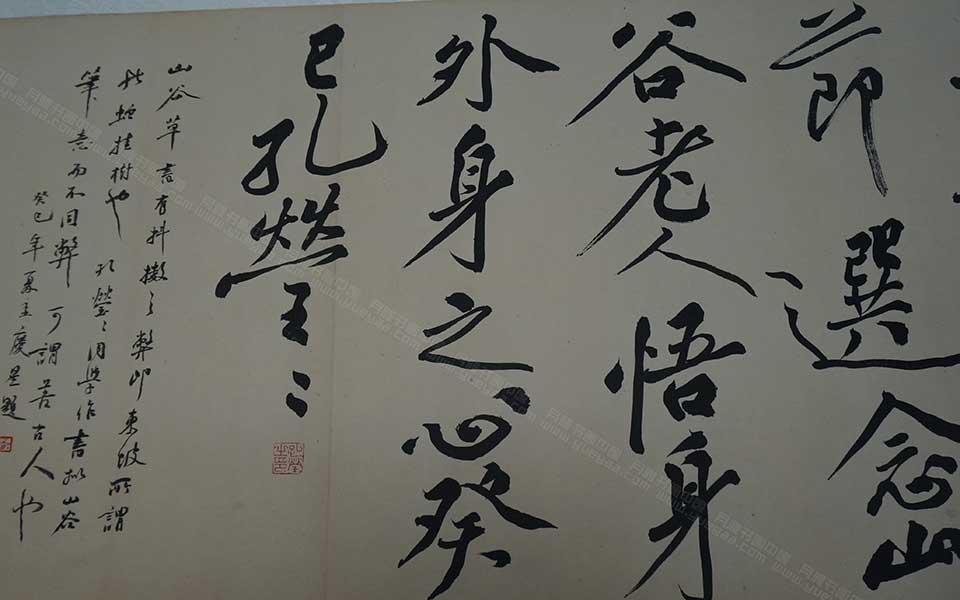 節選念山
谷老人悟身
外身之心癸
巳孔瑩
山谷草書有抖擻之弊即東坡所謂
蛇挂樹也孔瑩同學作書拟山谷
筆意而不同弊可謂善古人也
癸巳年夏孟慶星題